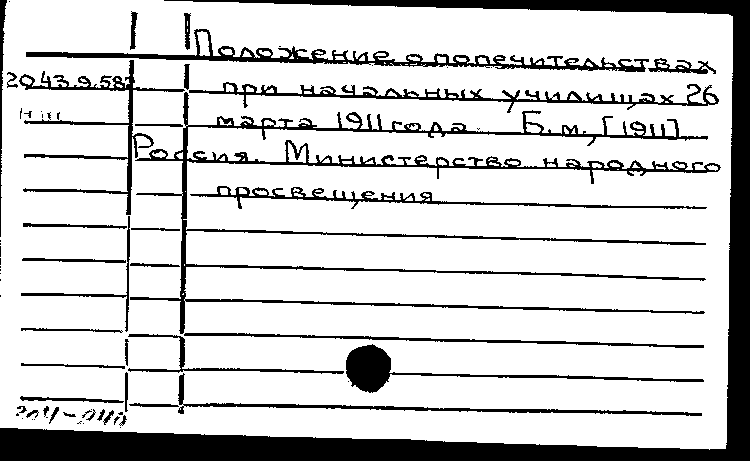 Положение о попечительствах
20.43.9.582 при начальных училищах 26
марта 1911 года Б.м., [1911]
Россия. Министерство народного
просвещения